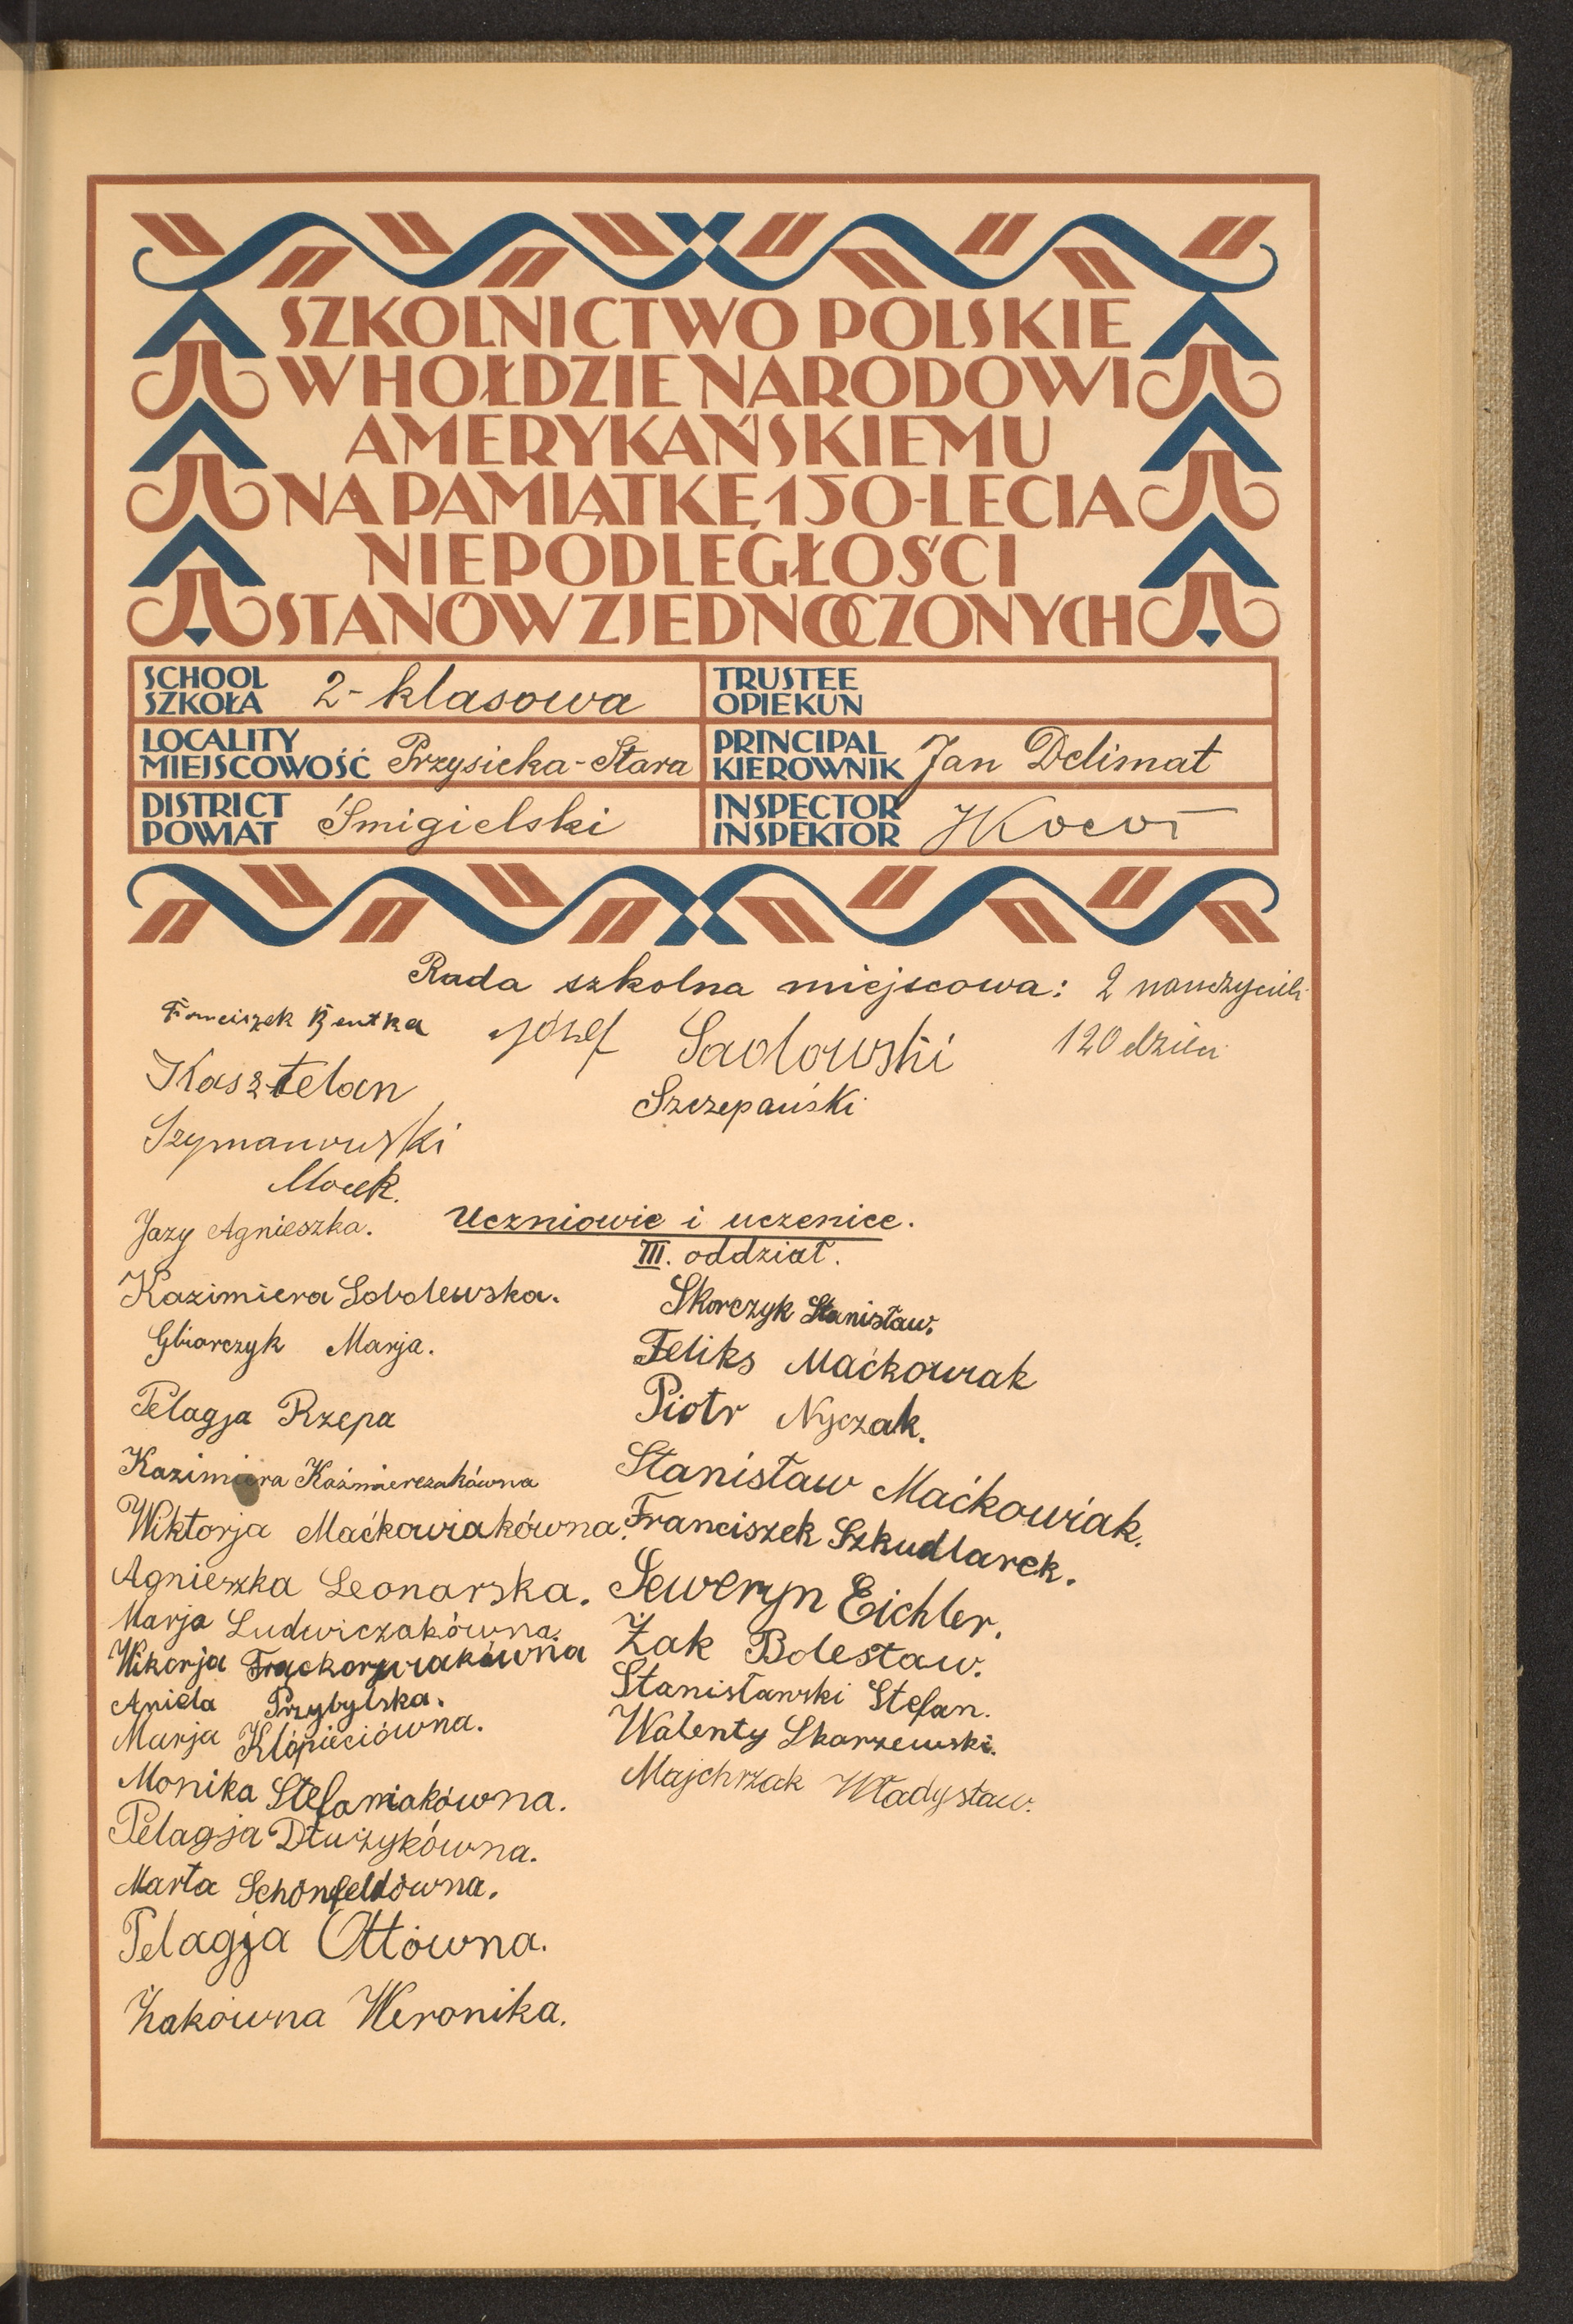 SZKOLNICTWO POLSKIE
W HOŁDZIE NARODOWI
AMERYKAŃSKIEMU
NA PAMIĄTKĘ 150-LECIA
NIEPODLEGŁOŚCI
STANÓW ZJEDNOCZONYCH
SCHOOL
SZKOŁA 2-klasowa
TRUSTEE
OPIEKUN
LOCALITY
MIEJSCOWOŚĆ Przysieka-Stara
PRINCIPAL
KIEROWNIK Jan Delimat
DISTRICT
POWIAT Śmigielski
INSPECTOR
INSPEKTOR
Rada szkolna miejscowa: 2 nauczycieli
Franciszek Józef Sadowski 120 dzieci
Kasztelan Szczepański
Szymanowski
Mocek.
Jazy Agnieszka. Uczniowie i uczenice.
III. oddział.
Kazimiera Sobolewska. Skorczyk Stanisław.
Gbiorczyk Marja. Feliks Maćkowiak
Pelagja Rzepa Piotr Nyczak.
Kazimiera Kaźmierczakówna Stanisław Maćkowiak.
Wiktorja Maćkowiakówna. Franciszek Szkudlarek.
Agnieszka Leonarska. Seweryn Eichler.
Marja Ludwiczakówna. Żak Bolesław.
Wikorja Stanisławski Stefan.
Aniela Przybylska. Walenty Skarzewski.
Marja Kłópieciówna. Majchrzak Władysław.
Monika Stefaniakówna.
Pelagja Dłużykówna.
Marta Schönfeldówna.
Pelagja Ottówna.
Żakówna Weronika.